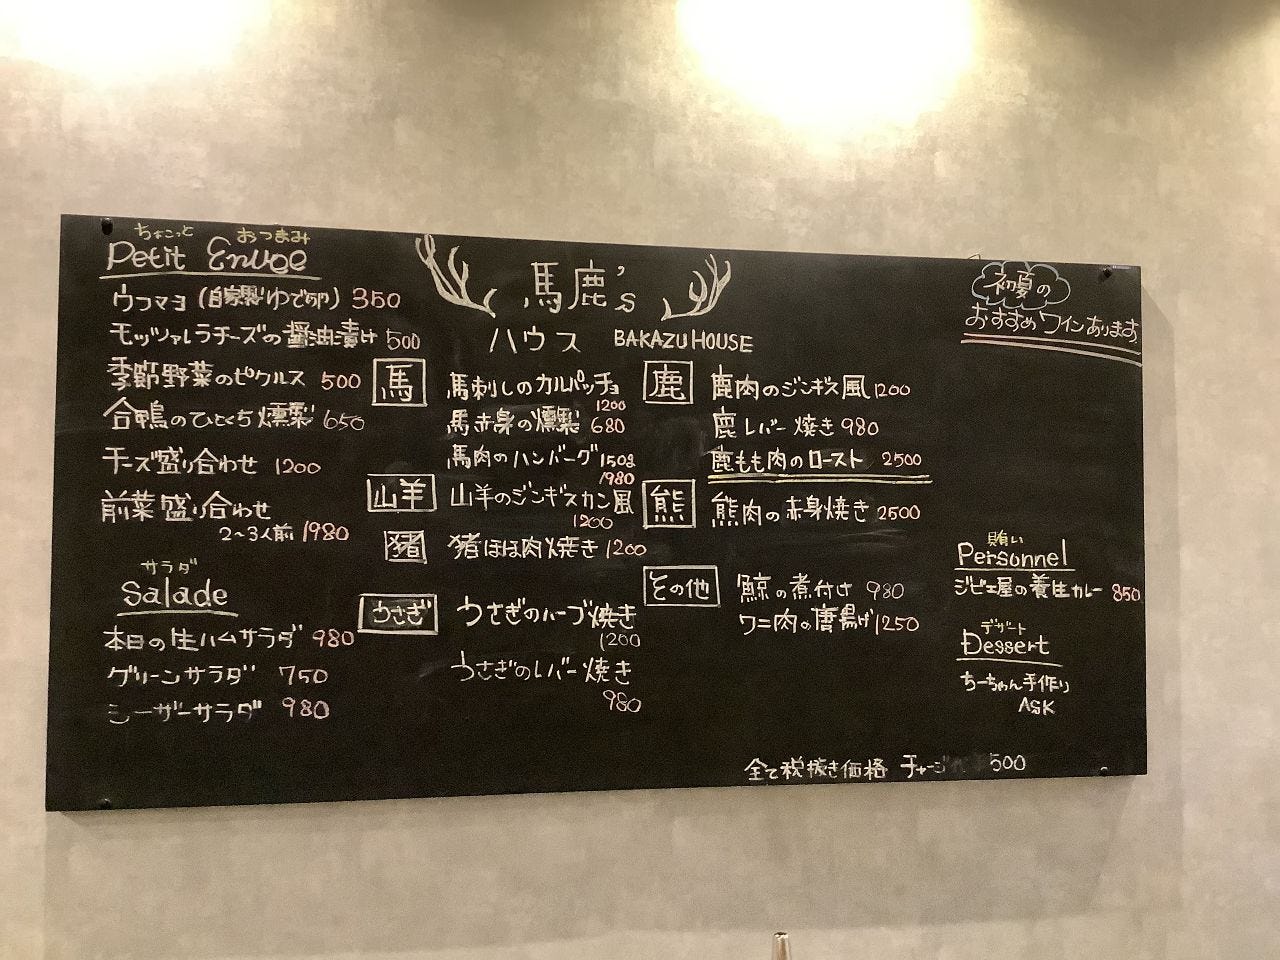 ちょこっと おつまみ
Petit Envee
ウフマヨ(自家製ゆで卵) 350
モッツァレラチーズの醤油漬け 500
季節野菜のピクルス 500
合鴨のひとくち燻製 650
チーズ盛り合わせ 1200
前菜盛り合わせ
2~3人前 1980
サラダ
Salade
本日の生ハムサラダ 980
グリーンサラダ 750
シーザーサラダ 980
馬鹿's
ハウス BAKAZU HOUSE
馬
馬刺しのカルパッチョ
1200
馬赤身の燻製 680
馬肉のハンバーグ 150g
1980
山羊
山羊のジンギスカン風
1200
猪
猪ほほ肉焼き 1200
うさぎ
うさぎのハーブ焼き
1200
うさぎのレバー焼き
980
鹿
鹿肉のジンギス風 1200
鹿レバー焼き 980
鹿もも肉のロースト 2500
熊
熊肉の赤身焼き 2500
その他
鯨の煮付け 980
ワニ肉の唐揚げ 1250
初夏の
おすすめワインあります
賄い
Personnel
ジビエ屋の養生カレー 850
デザート
Dessert
ちーちゃん手作り
ASK
全て税抜き価格 チャージ 500